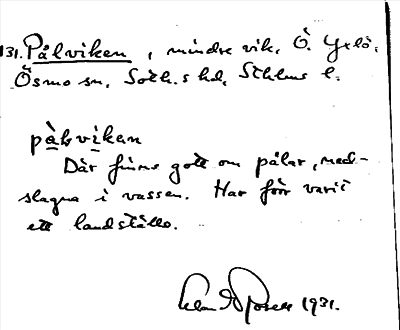 131. Pålviken, mindre vik, Ö. Yxlö,
Ösmo sn, Soth.s hd, Sthlms l.
pàlviken
Där finns gott om pålar, ned-
slagna i vassen. Har förr varit
ett landställe.
1931.